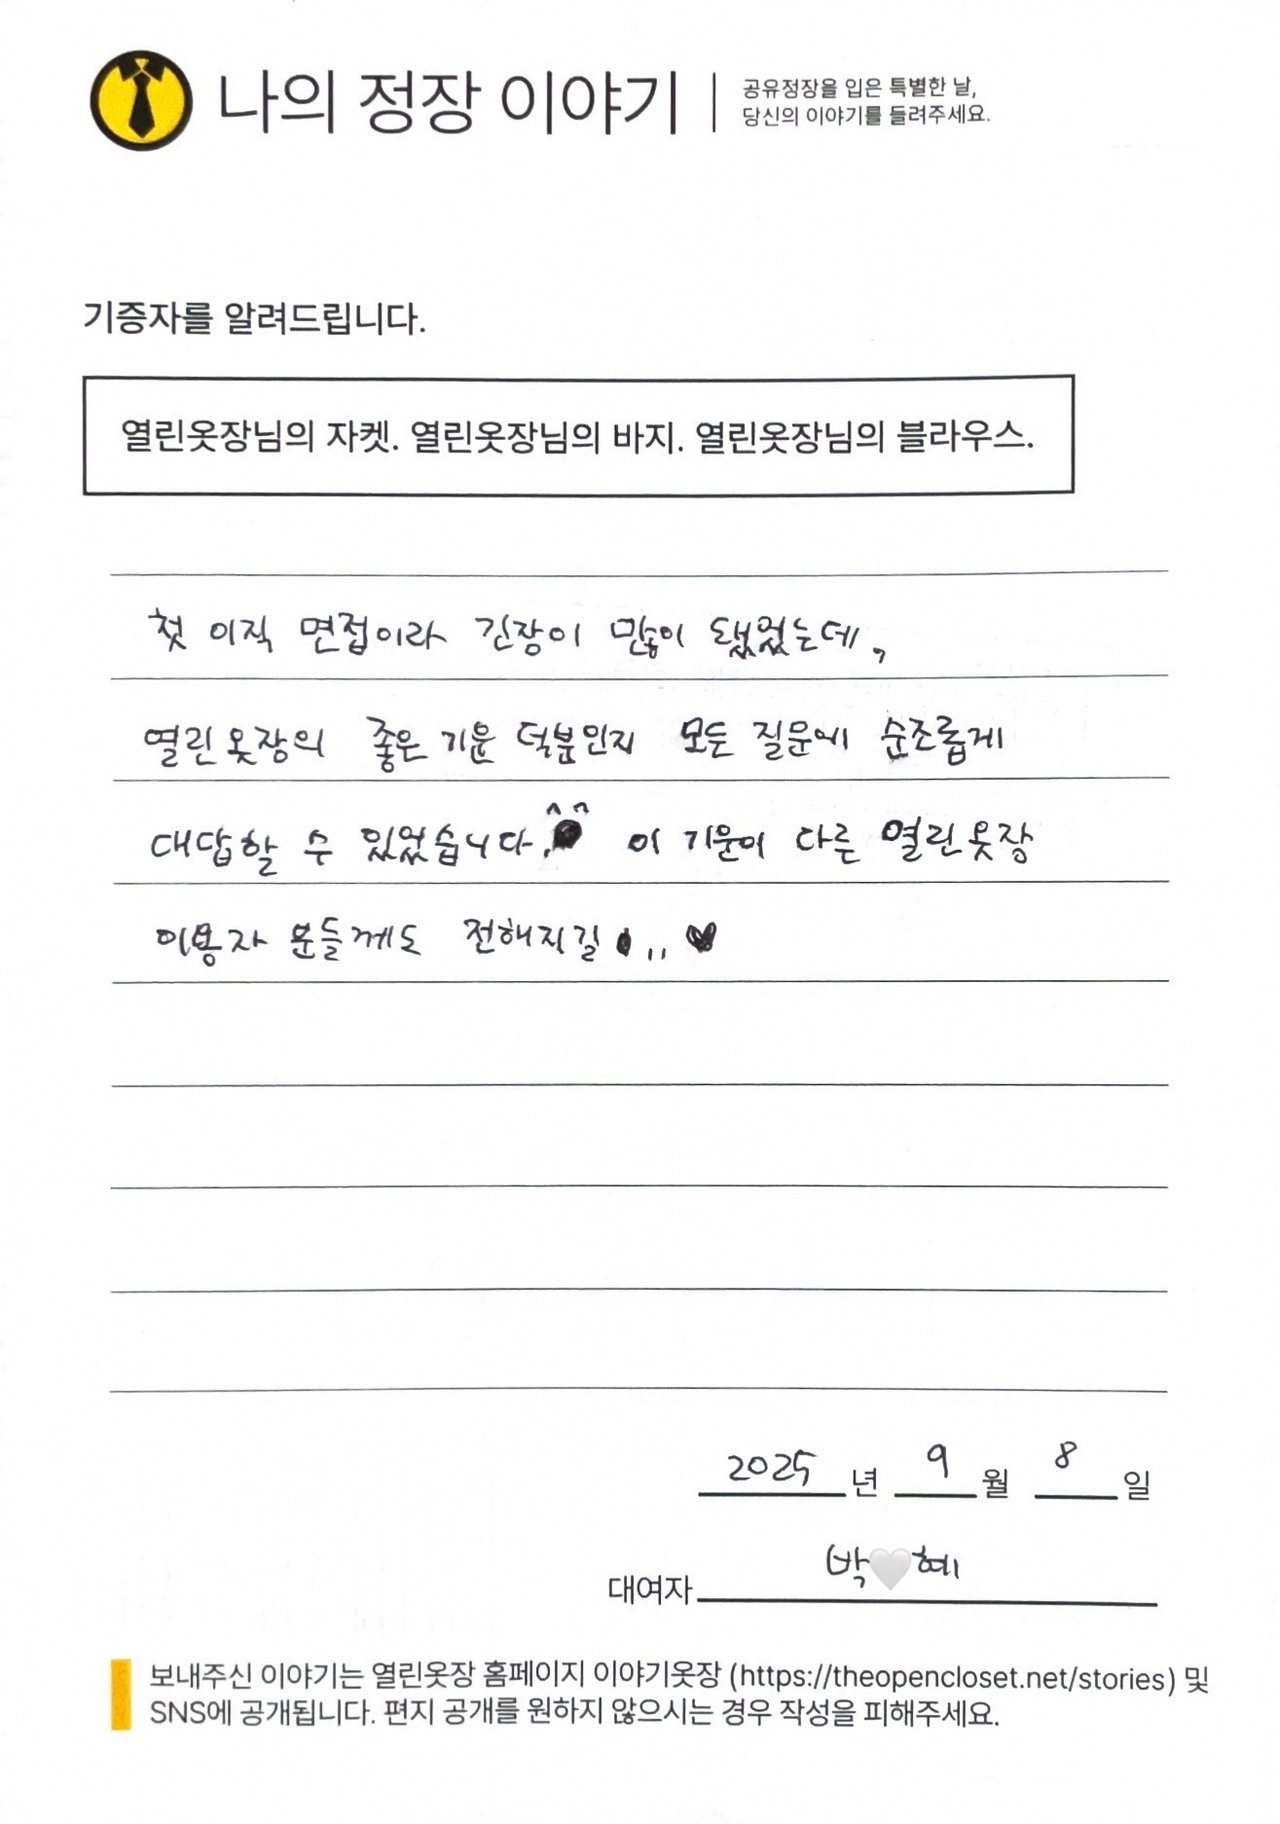 나의 정장 이야기
공유정장을 입은 특별한 날,
당신의 이야기를 들려주세요.
기증자를 알려드립니다.
열린옷장님의 자켓. 열린옷장님의 바지. 열린옷장님의 블라우스.
첫 이직 면접이라 긴장이 많이 됐었는데,
열린옷장의 좋은 기운 덕분인지 모든 질문에 순조롭게
대답할 수 있었습니다.^^ 이 기운이 다른 열린옷장
이용자 분들께도 전해지길... ♥
2025 년 9 월 8 일
대여자 박🤍혜
보내주신 이야기는 열린옷장 홈페이지 이야기옷장 (https://theopencloset.net/stories) 및
SNS에 공개됩니다. 편지 공개를 원하지 않으시는 경우 작성을 피해주세요.